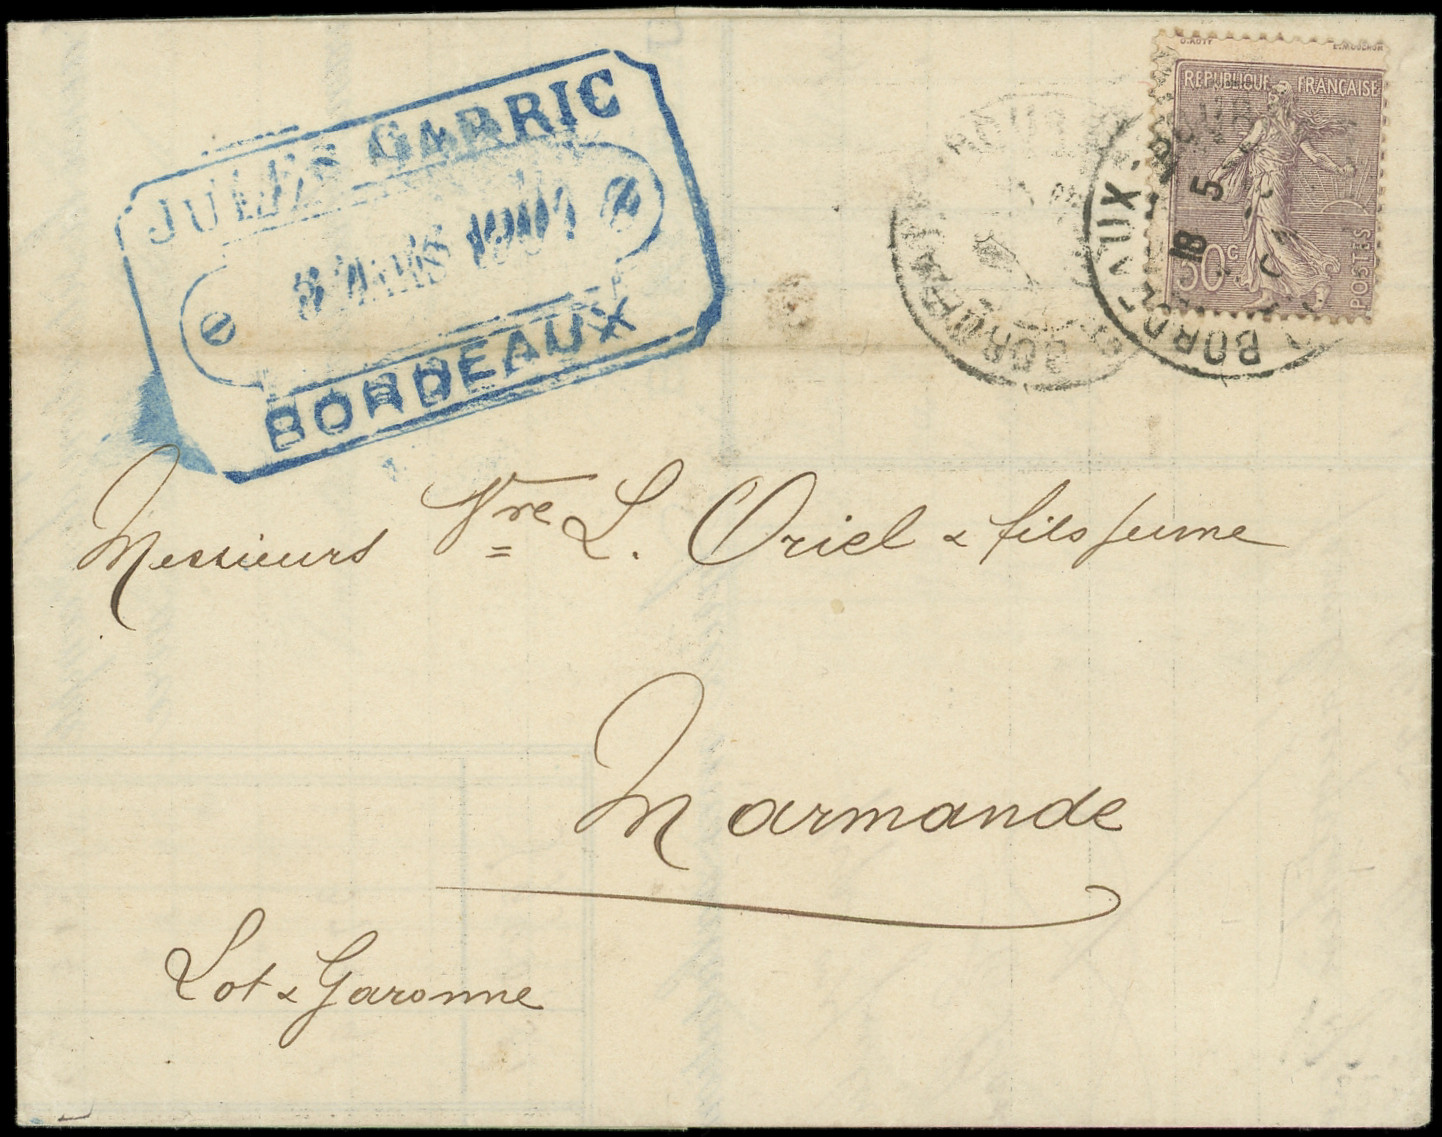 JULES GARRIC
MARS
BORDEAUX
O.ROTY
E.MOUCHON
REPUBLIQUE FRANÇAISE
30c
POSTES
BORDEAUX
18 5
BORDEAUX
Messieurs Vve L. Oriel & fils jeune
Marmande
Lot & Garonne